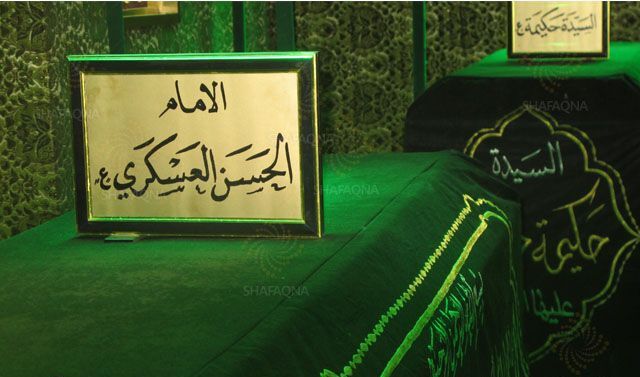 الامام
الحَسَن العَسْكَري ع
السيدة حكيمة ع
السيدة
حكيمة
عليها
SHAFAQNA
SHAFAQNA
SHAFAQNA
SHAFAQNA
SHAFAQNA